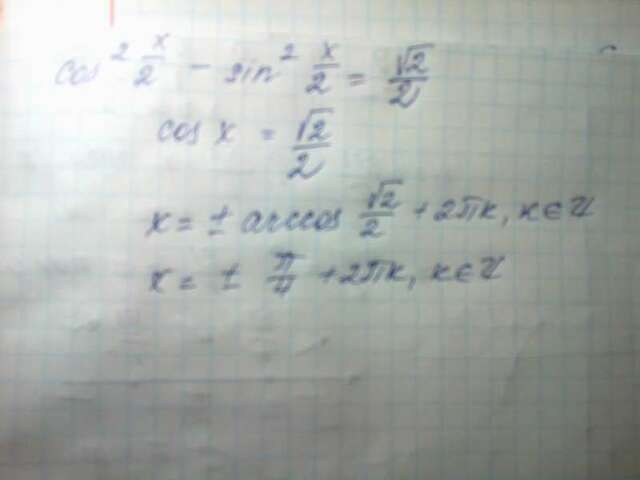 cos² x/2 - sin² x/2 = √2/2
cos x = √2/2
x = ± arccos √2/2 + 2πк, к ∈ Z
x = ± π/4 + 2πк, к ∈ Z